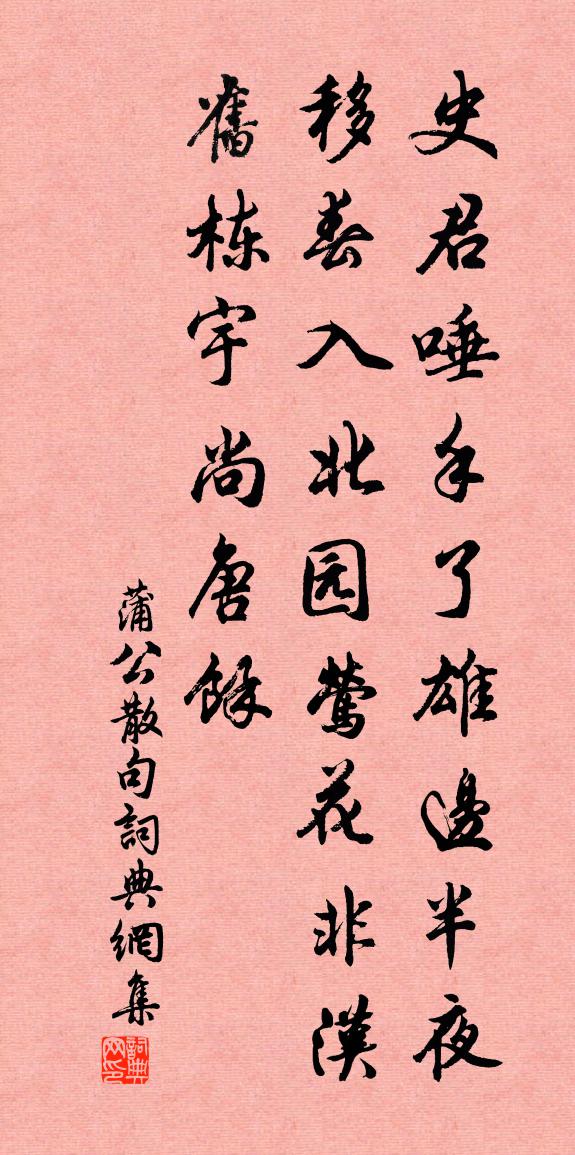 史君唾手了雄邊半夜
移春入北园莺花非漢
舊栋宇尚唐餘
蒲公散句詞典網集
詞典网印